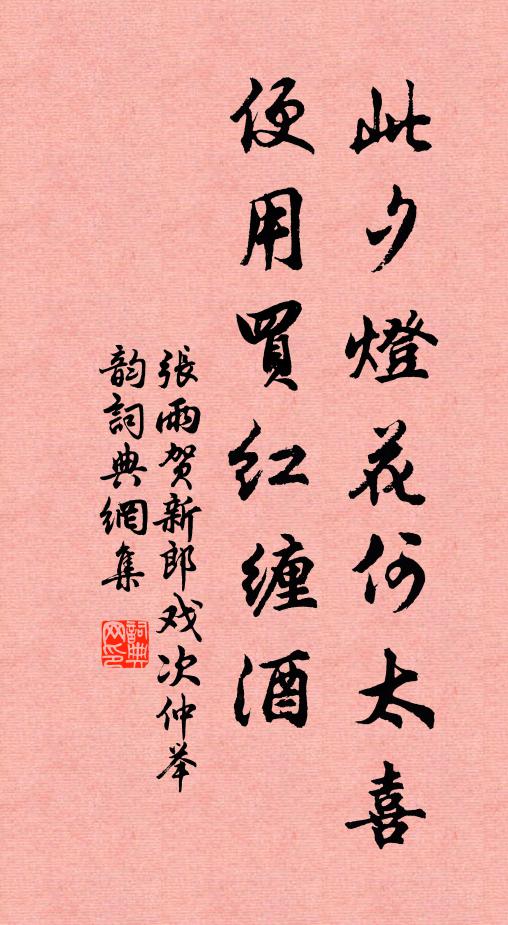 此夕燈花何太喜
便用買红缠酒
張雨贺新郎戏次仲举
韵詞典網集
詞典网印